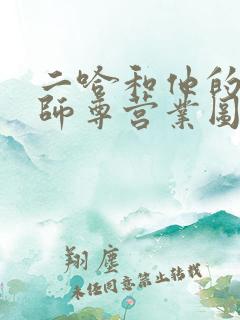 二哈和他的
师尊营业图
翔尘
未经同意禁止转载